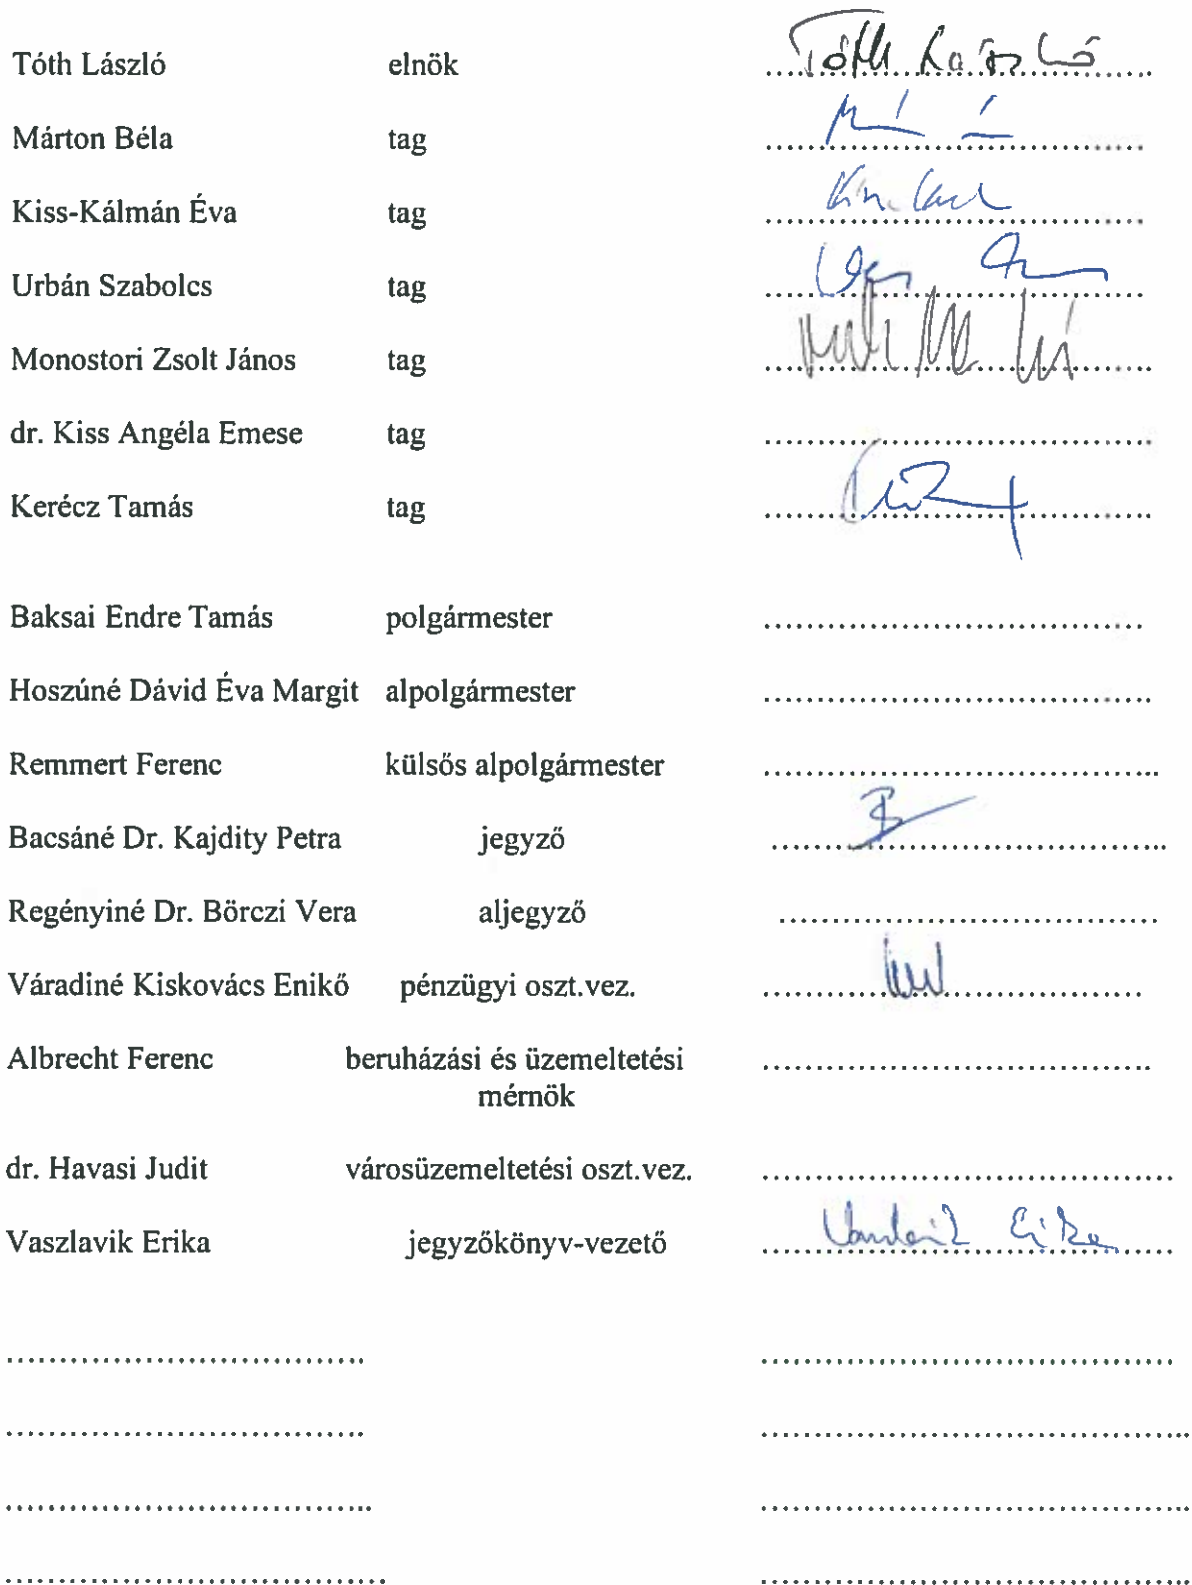 Tóth László elnök Tóth László
Márton Béla tag
Kiss-Kálmán Éva tag
Urbán Szabolcs tag
Monostori Zsolt János tag
dr. Kiss Angéla Emese tag
Kerécz Tamás tag
Baksai Endre Tamás polgármester
Hoszúné Dávid Éva Margit alpolgármester
Remmert Ferenc külsős alpolgármester
Bacsáné Dr. Kajdity Petra jegyző
Regényiné Dr. Börczi Vera aljegyző
Váradiné Kiskovács Enikő pénzügyi oszt.vez.
Albrecht Ferenc beruházási és üzemeltetési
mérnök
dr. Havasi Judit városüzemeltetési oszt.vez.
Vaszlavik Erika jegyzőkönyv-vezető Vaszlavik Erika